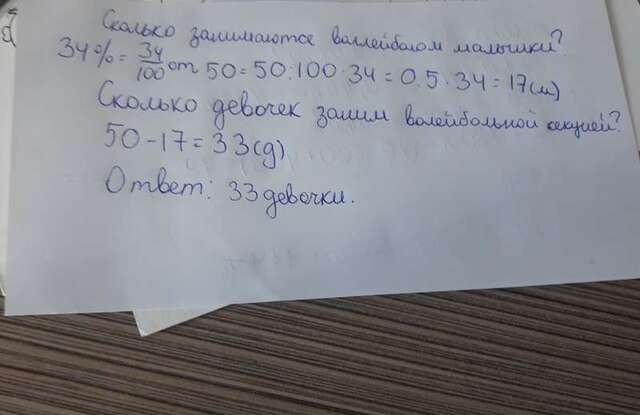 Сколько занимаются воллейболом мальчики?
34% = 34/100 от 50 = 50:100·34 = 0.5·34 = 17(м)
Сколько девочек заним волейбольной секцией?
50-17=33(д)
Ответ: 33 девочки.